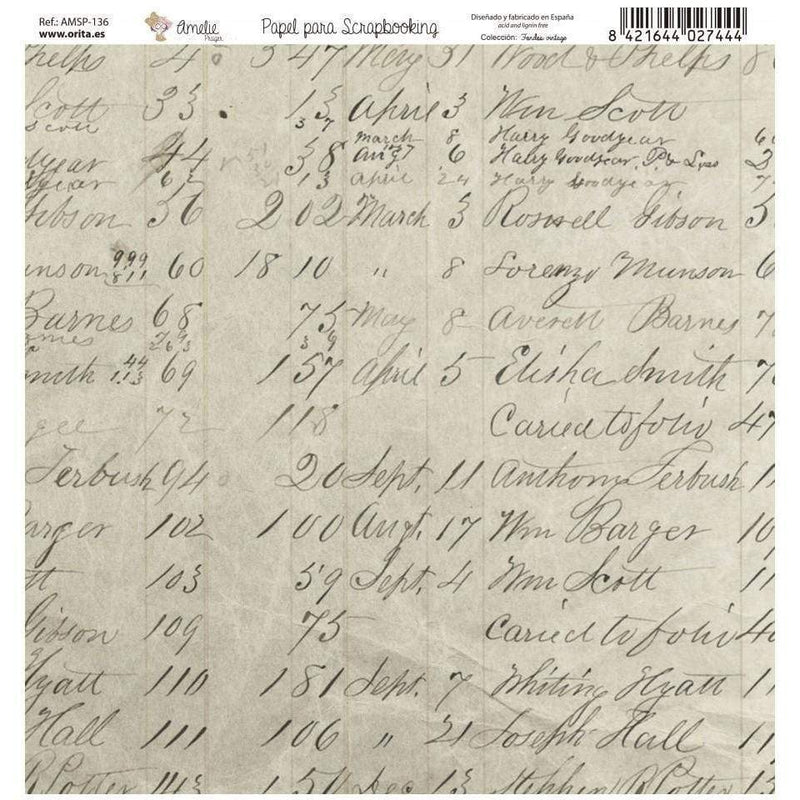 Ref.: AMSP-136
www.orita.es
Amelie
Prager
Papel para Scrapbooking
Diseñado y fabricado en España
acid and lignin free
Colección: Fondos vintage
8 421644 027444
Phelps 45 3 47 May 31 Wood & Phelps 8
Scott 33 1 3 April 3 Wm Scott
Scott 3 7 March 8 Harry Goodyear 6
dyear 44 38 Aug 6 Harry Goodyear, P & Loss 2
dyear 62 13 April 24 Harry Goodyear 7
Gibson 56 2 02 March 3 Roswell Gibson 5
unson 999 811 60 18 10 " 8 Lorenzo Munson 6
Barnes 68 75 May 8 Averett Barnes 7
rnes 3 9
mith 44 113 69 1 57 April 5 Elisha Smith 7
gee 72 118 Caried to folio 47
Terbush 94 20 Sept. 11 Anthony Terbush 11
arger 102 1 00 Augt. 17 Wm Barger 10
tt 103 59 Sept. 4 Wm Scott 11
Gibson 109 75 Caried to folio 4
Hyatt 110 181 Sept. 7 Whiting Hyatt 11
Hall 111 106 " 21 Joseph Hall 11
R Potter 143 1 51 Dec 13 Stephen R Potter 13